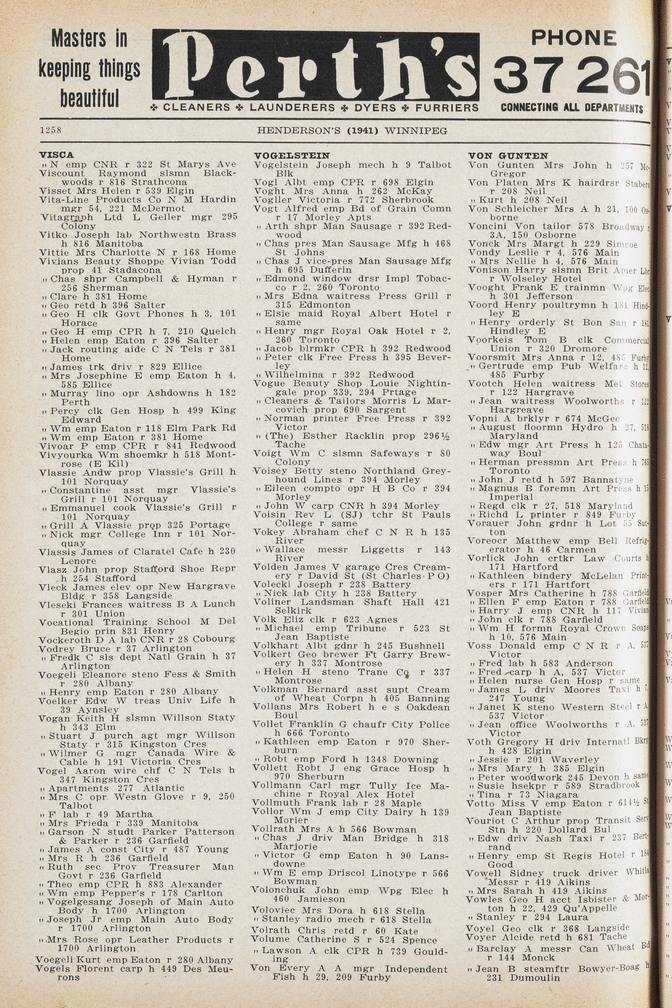 Masters in
keeping things
beautiful
Perth's
❖ CLEANERS ❖ LAUNDERERS ❖ DYERS ❖ FURRIERS
PHONE
37 261
CONNECTING ALL DEPARTMENTS
1258
HENDERSON'S (1941) WINNIPEG
VISCA
„ N emp CNR r 322 St Marys Ave
Viscount Raymond slsmn Black-
woods r 816 Strathcona
Visset Mrs Helen r 539 Elgin
Vita-Line Products Co N M Hardin
mgr 54, 221 McDermot
Vitagraph Ltd L Geller mgr 295
Colony
Vitko Joseph lab Northwestn Brass
h 816 Manitoba
Vittie Mrs Charlotte N r 168 Home
Vivians Beauty Shoppe Vivian Todd
prop 41 Stadacona
„ Chas shpr Campbell & Hyman r
256 Sherman
„ Clare h 381 Home
„ Geo retd h 396 Salter
„ Geo H clk Govt Phones h 3, 101
Horace
„ Geo H emp CPR h 7, 210 Quelch
„ Helen emp Eaton r 396 Salter
„ Jack routing aide C N Tels r 381
Home
„ James trk driv r 829 Ellice
„ Mrs Josephine E emp Eaton h 4,
585 Ellice
„ Murray lino opr Ashdowns h 182
Perth
„ Percy clk Gen Hosp h 499 King
Edward
„ Wm emp Eaton r 118 Elm Park Rd
„ Wm emp Eaton r 381 Home
Vivoar P emp CPR r 841 Redwood
Vivyourka Wm shoemkr h 518 Mont-
rose (E Kil)
Vlassie Andw prop Vlassie's Grill h
101 Norquay
„ Constantine asst mgr Vlassie's
Grill r 101 Norquay
„ Emmanuel cook Vlassie's Grill r
101 Norquay
„ Grill A Vlassie prop 325 Portage
„ Nick mgr College Inn r 101 Nor-
quay
Vlassis James of Claratel Cafe h 230
Lenore
Vlasz John prop Stafford Shoe Repr
h 254 Stafford
Vleck James elev opr New Hargrave
Bldg r 358 Langside
Vleseki Frances waitress B A Lunch
r 301 Union
Vocational Training School M Del
Begio prin 831 Henry
Vockeroth D A lab CNR r 28 Cobourg
Vodrey Bruce r 37 Arlington
„ Fredk C sls dept Natl Grain h 37
Arlington
Voegeli Eleanore steno Fess & Smith
r 280 Albany
„ Henry emp Eaton r 280 Albany
Voelker Edw W treas Univ Life h
39 Aynsley
Vogan Keith H slsmn Willson Staty
h 343 Elm
„ Stuart J purch agt mgr Willson
Staty r 315 Kingston Cres
„ Wilmer G mgr Canada Wire &
Cable h 191 Victoria Cres
Vogel Aaron wire chf C N Tels h
347 Kingston Cres
„ Apartments 277 Atlantic
„ Mrs C opr Westn Glove r 9, 250
Talbot
„ F lab r 49 Martha
„ Mrs Frieda r 339 Manitoba
„ Garson N studt Parker Patterson
& Parker r 236 Garfield
„ James A const City r 487 Young
„ Mrs R h 236 Garfield
„ Ruth sec Prov Treasurer Man
Govt r 236 Garfield
„ Theo emp CPR h 883 Alexander
„ Wm emp Pepper's r 178 Carlton
„ Vogelgesang Joseph of Main Auto
Body h 1700 Arlington
„ Joseph Jr emp Main Auto Body
r 1700 Arlington
„ Mrs Rose opr Leather Products r
1700 Arlington
Voegeli Kurt emp Eaton r 280 Albany
Vogels Florent carp h 449 Des Meu-
rons
VOGELSTEIN
Vogelstein Joseph mech h 9 Talbot
Blk
Vogl Albt emp CPR r 698 Elgin
Voght Mrs Anna h 262 McKay
Vogller Victoria r 772 Sherbrook
Vogt Alfred emp Bd of Grain Comn
r 17 Morley Apts
„ Arth shpr Man Sausage r 392 Red-
wood
„ Chas pres Man Sausage Mfg h 468
St Johns
„ Chas J vice-pres Man Sausage Mfg
h 695 Dufferin
„ Edmond window drsr Impl Tobac-
co r 2, 260 Toronto
„ Mrs Edna waitress Press Grill r
315 Edmonton
„ Elsie maid Royal Albert Hotel r
same
„ Henry mgr Royal Oak Hotel r 2,
260 Toronto
„ Jacob blrmkr CPR h 392 Redwood
„ Peter clk Free Press h 395 Bever-
ley
„ Wilhelmina r 392 Redwood
Vogue Beauty Shop Louie Nightin-
gale prop 339, 294 Prtage
„ Cleaners & Tailors Morris L Mar-
covich prop 690 Sargent
„ Norman printer Free Press r 392
Victor
„ (The) Esther Racklin prop 296½
Tache
Voigt Wm C slsmn Safeways r 80
Colony
Voisey Betty steno Northland Grey-
hound Lines r 394 Morley
„ Eileen compto opr H B Co r 394
Morley
„ John W carp CNR h 394 Morley
Voisin Rev L (SJ) tchr St Pauls
College r same
Vokey Abraham chef C N R h 135
River
„ Wallace messr Liggetts r 143
River
Volden James V garage Cres Cream-
ery r David St (St Charles P O)
Volecki Joseph r 238 Battery
„ Nick lab City h 238 Battery
Voliner Landsman Shaft Hall 421
Selkirk
Volk Eliz clk r 623 Agnes
„ Michael emp Tribune r 523 St
Jean Baptiste
Volkhart Albt gdnr h 245 Bushnell
Volkert Geo brewer Ft Garry Brew-
ery h 337 Montrose
„ Helen H steno Trane Co r 337
Montrose
Volkman Bernard asst supt Cream
of Wheat Corpn h 405 Banning
Vollans Mrs Robert h e s Oakdean
Boul
Vollet Franklin G chaufr City Police
h 666 Toronto
„ Kathleen emp Eaton r 970 Sher-
burn
„ Robt emp Ford h 1348 Downing
Vollett Robt J eng Grace Hosp h
970 Sherburn
Vollmann Carl mgr Tully Ice Ma-
chine r Royal Alex Hotel
Vollmuth Frank lab r 28 Maple
Vollor Wm J emp City Dairy h 139
Morier
Vollrath Mrs A h 566 Bowman
„ Chas J driv Man Bridge h 318
Marjorie
„ Victor G emp Eaton h 90 Lans-
downe
„ Wm E emp Driscol Linotype r 566
Bowman
Volonchuk John emp Wpg Elec h
460 Jamieson
Voloviec Mrs Dora h 618 Stella
„ Stanley radio mech r 618 Stella
Volrath Chris retd r 60 Kate
Volume Catherine S r 524 Spence
„ Lawson A clk CPR h 739 Gould-
ing
Von Every A A mgr Independent
Fish h 29, 209 Furby
VON GUNTEN
Von Gunten Mrs John h 257 Mc-
Gregor
Von Platen Mrs K hairdrsr Stabers
r 208 Neil
„ Kurt h 208 Neil
Von Schleicher Mrs A h 21, 100 Os-
borne
Voncini Von tailor 578 Broadway r
3A, 150 Osborne
Vonck Mrs Margt h 229 Simcoe
Vondy Leslie r 4, 576 Main
„ Mrs Nellie h 4, 576 Main
Vonison Harry slsmn Brit Amer Lbr
r Wolseley Hotel
Vooght Frank E trainmn Wpg Elec
h 301 Jefferson
Voord Henry poultrymn h 181 Hind-
ley E
„ Henry orderly St Bon San r 181
Hindley E
Voorkeis Tom B clk Commercial
Union r 320 Dromore
Voorsmit Mrs Anna r 12, 485 Furby
„ Gertrude emp Pub Welfare h 12,
485 Furby
Vootch Helen waitress Met Stores
r 122 Hargrave
„ Jean waitress Woolworths r 122
Hargreave
Vopni A brklyr r 674 McGee
„ August floormn Hydro h 27, 518
Maryland
„ Edw mgr Art Press h 125 Chata-
way Boul
„ Herman pressmn Art Press h 765
Toronto
„ John J retd h 597 Bannatyne
„ Magnus B foremn Art Press h 15
Imperial
„ Regd clk r 27, 518 Maryland
„ Richd L printer r 849 Furby
Vorauer John grdnr h Lot 55 Sut-
ton
Voreocr Matthew emp Bell Refrig-
erator h 46 Carmen
Vorlick John crtkr Law Courts h
171 Hartford
„ Kathleen bindery McLelan Print-
ers r 171 Hartford
Vosper Mrs Catherine h 788 Garfield
„ Ellen F emp Eaton r 788 Garfield
„ Harry J emp CNR h 117 Vivian
„ John clk r 788 Garfield
„ Wm H formn Royal Crown Soaps
h 10, 576 Main
Voss Donald emp C N R r A, 537
Victor
„ Fred lab h 583 Anderson
„ Fred carp h A, 537 Victor
„ Helen nurse Gen Hosp r same
„ James L driv Moores Taxi h 7,
247 Young
„ Janet K steno Western Steel r A,
537 Victor
„ Jean office Woolworths r A, 537
Victor
Voth Gregory H driv Internatl Bkry
h 428 Elgin
„ Jessie r 201 Waverley
„ Mrs Mary h 385 Elgin
„ Peter woodwork 245 Devon h same
„ Susie hsekpr r 589 Stradbrook
„ Tina r 73 Niagara
Votto Miss V emp Eaton r 614½ St
Jean Baptiste
Vouriot C Arthur prop Transit Serv
Stn h 220 Dollard Bul
„ Edw driv Nash Taxi r 237 Bert-
rand
„ Henry emp St Regis Hotel r 184
Good
Vowell Sidney truck driver Whitla
Messr r 419 Aikins
„ Mrs Sarah h 419 Aikins
Vowles Geo H acct Isbister & Mor-
ton h 22, 429 Qu'Appelle
„ Stanley r 294 Laura
Voyel Geo clk r 368 Langside
Voyer Alcide retd h 681 Tache
„ Barclay A messr Can Wheat Bd
r 144 Monck
„ Jean B steamftr Bowyer-Boag h
231 Dumoulin